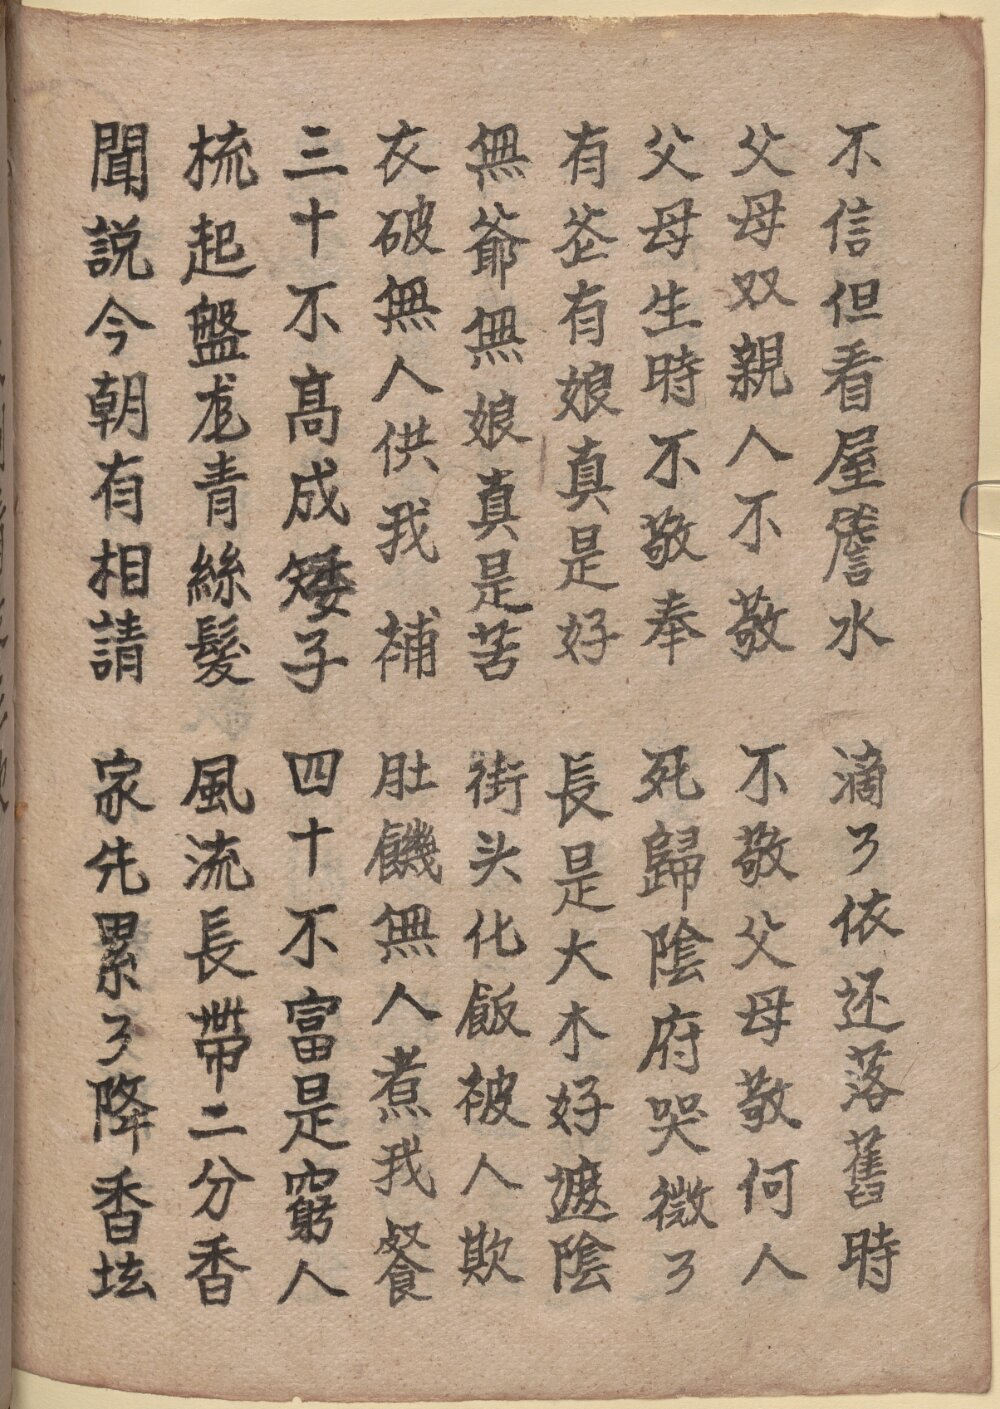 不信但看屋簷水 滴了依还落舊時
父母双親人不敬 不敬父母敬何人
父母生時不敬奉 死歸陰府哭微了
有爷有娘真是好 長是大木好遮陰
無爺無娘真是苦 街头化飯被人欺
衣破無人供我補 肚饑無人煮我餐
三十不高成矮子 四十不富是窮人
梳起盤龙青絲髮 風流長帶二分香
聞説今朝有相請 家先累了降香坛